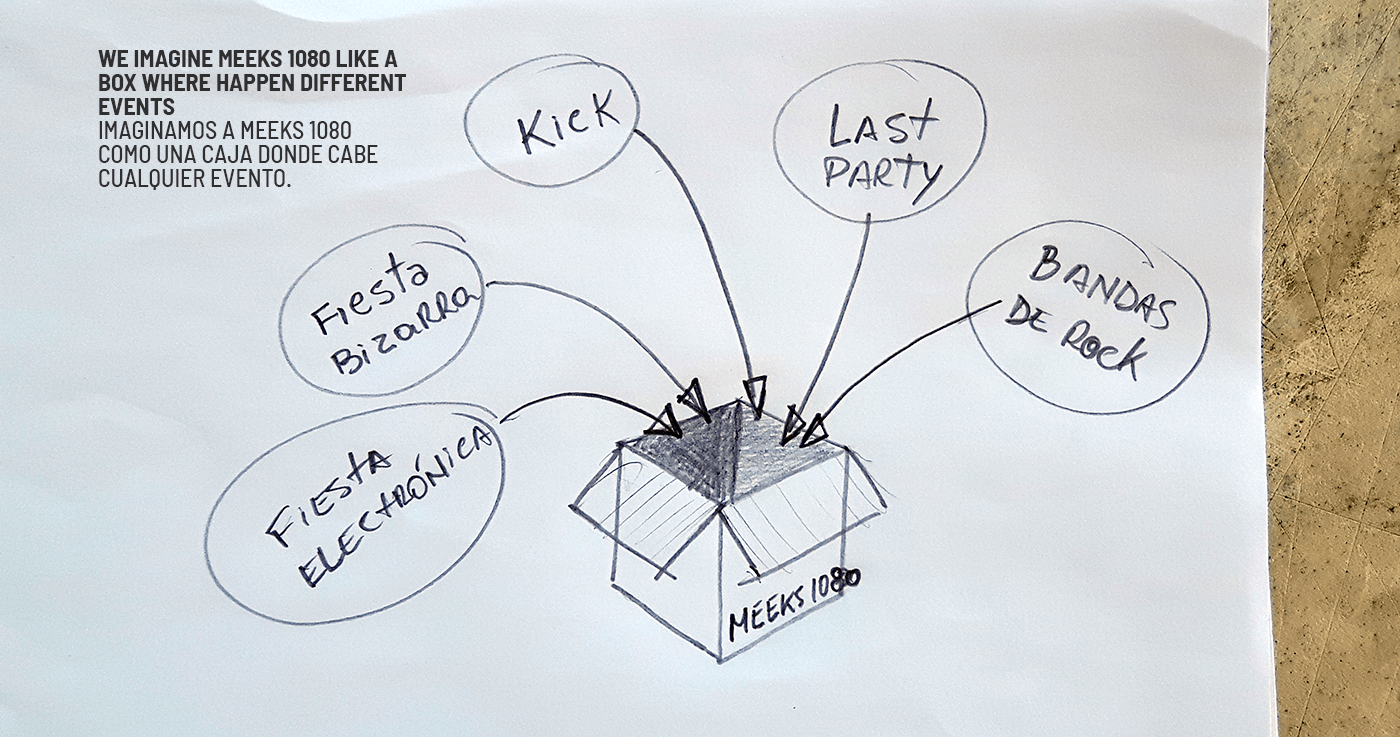 WE IMAGINE MEEKS 1080 LIKE A
BOX WHERE HAPPEN DIFFERENT
EVENTS
IMAGINAMOS A MEEKS 1080
COMO UNA CAJA DONDE CABE
CUALQUIER EVENTO.
KicK
LASt
PARTY
Fiesta
BizaRRa
BANDAS
DE Rock
FiEStA
ELECtRÓNicA
MEEKS 1080